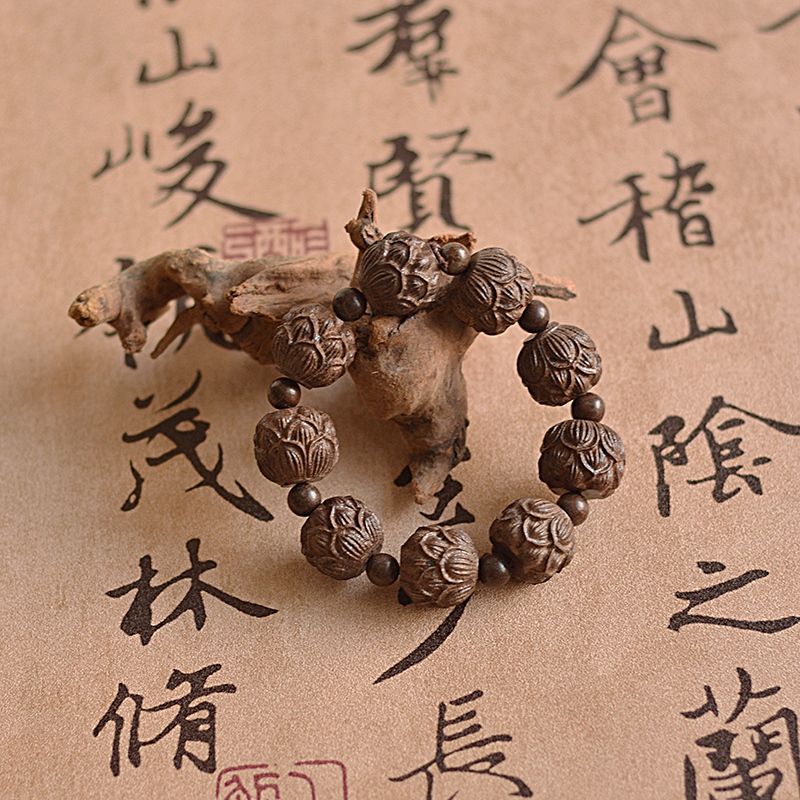 會稽山陰之蘭
羣賢長
山峻茂林脩